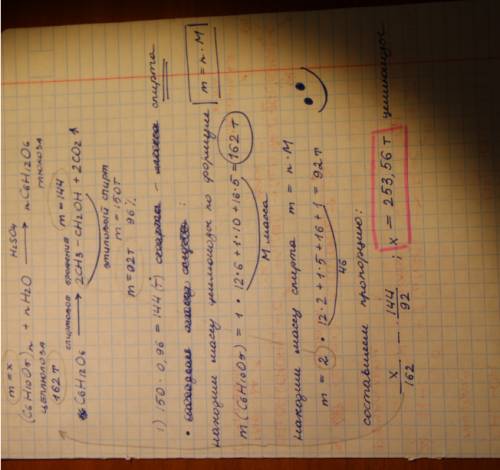 m=x
(C6H10O5)n + nH2O H2SO4 → nC6H12O6
целлюлоза глюкоза
162т
спиртовое брожение m=144
C6H12O6 → 2CH3-CH2OH + 2CO2↑
этиловый спирт
m=150т
m=92т 96%
1) 150·0,96=144(т) - спирта
находим массу целлюлозы по формуле m=n·M
m(C6H10O5)=1·12·6+1·10+16·5=162т
M.масса
находим массу спирта m=n·M
m=2·12·2+1·5+16+1=92т
46
составляем пропорцию:
x/162 - 144/92 ; x=253,56т целлюлозы